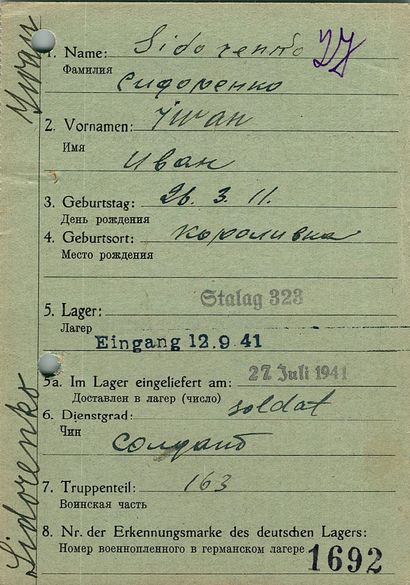 Iwan
Sidorenko
1. Name: Sidorenko
Фамилия
Сидоренко
2. Vornamen: Iwan
Имя
Иван
3. Geburtstag: 26. 3. 11.
День рождения
4. Geburtsort: Короливка
Место рождения
Stalag 323
5. Lager:
Лагер
Eingang 12.9.41
5a. Im Lager eingeliefert am: 27 Juli 1941
Доставлен в лагер (число)
6. Dienstgrad: Soldat
Чин
Солдат
7. Truppenteil: 163
Воинская часть
8. Nr. der Erkennungsmarke des deutschen Lagers:
Номер военнопленного в германском лагере 1692